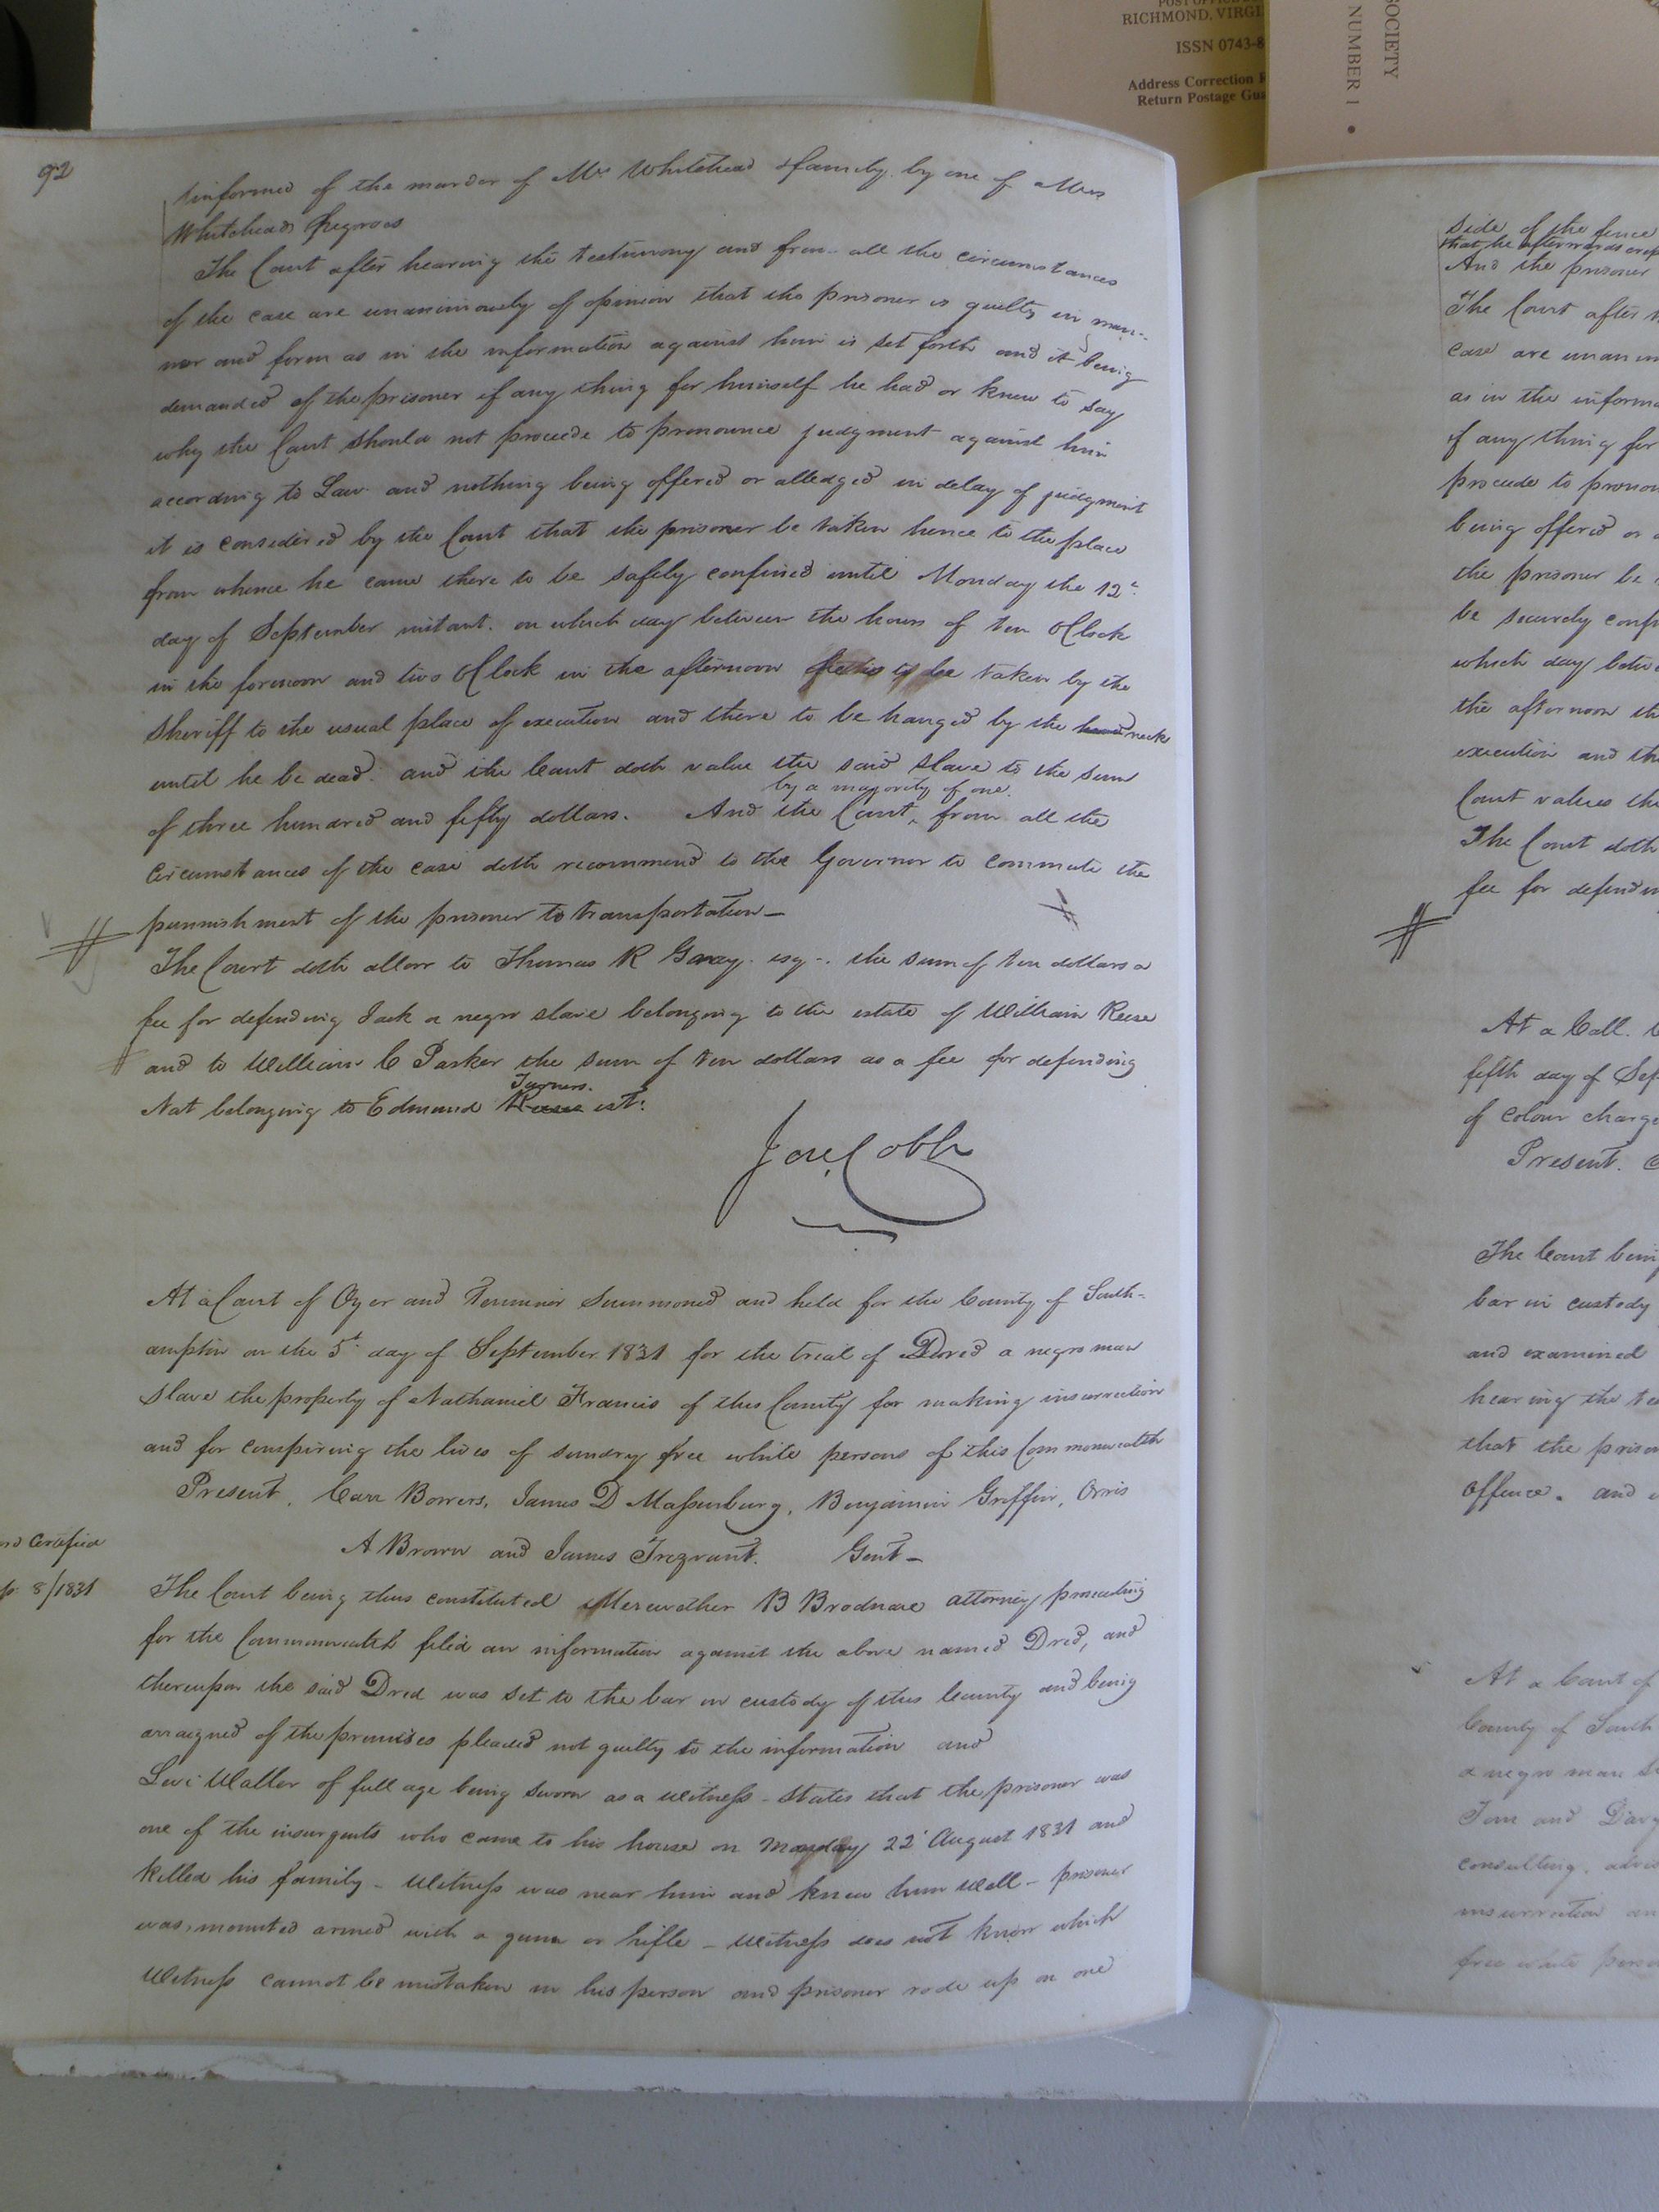 POST OFFICE
RICHMOND, VIRGI
ISSN 0743-8
Address Correction R
Return Postage Gua
SOCIETY
NUMBER 1 •
92
informed of the murder of Mrs Whitehead & family by one of Mrs
Whiteheads Negroes
The Court after hearing the testimony and from all the circumstances
of the case are unanimously of opinion that the prisoner is guilty in man-
ner and form as in the information against him is set forth and it being
demanded of the prisoner if any thing for himself he had or knew to say
why the Court should not procede to pronounce judgment against him
according to Law and nothing being offered or alledged in delay of judgment
it is considered by the Court that the prisoner be taken hence to the place
from whence he came there to be safely confined until Monday the 12t
day of September instant. on which day between the hours of ten OClock
in the forenoon and two OClock in the afternoon he is to be taken by the
Sheriff to the usual place of execution and there to be hanged by the neck
until he be dead. and the Court doth value the said slave to the sum
by a majority of one
of three hundred and fifty dollars. And the Court, from all the
Circumstances of the case doth recommend to the Governor to commute the
punnishment of the prisoner to transportation —
The Court doth allow to Thomas R Gray esq. the sum of ten dollars a
fee for defending Jack a negro slave belonging to the estate of William Reese
and to William C Parker the sum of ten dollars as a fee for defending
Turners.
Nat belonging to Edmund Reese est:
Jas. Cobb
At a Court of Oyer and Terminer Summoned and held for the County of South-
ampton on the 5t day of September 1831 for the trial of Dred a negro man
Slave the property of Nathaniel Francis of this County for making insurrection
and for conspiring the lives of sundry free white persons of this Commonwealth
Present. Carr Bowers, James D Massenburg, Benjamin Griffin, Orris
A Browne and James Trezvant. Gent —
Certified
8/1831
The Court being thus constituted Meriwether B Brodnax attorney prosecuting
for the Commonwealth filed an information against the above named Dred, and
thereupon the said Dred was set to the bar in custody of this County and being
arraigned of the premises pleaded not guilty to the information and
Levi Waller of full age being sworn as a witness - States that the prisoner was
one of the insurgents who came to his house on Monday 22 August 1831 and
Killed his family - Witness was near him and knew him well - prisoner
was mounted armed with a gun or rifle - Witness does not know which
Witness cannot be mistaken in his person and prisoner rode up on one
side of the fence
that he afterwards
And the prisoner
The Court after
case are unanim
as in the informa
if any thing for
procede to pronou
being offered or
the prisoner be
be securely conf
which day betwe
the afternoon
execution and the
Court values the
The Court doth
fee for defendin
At a Call
fifth day of Sep
of colour charge
Present.
The Court bein
bar in custody
and examined
hearing the tes
that the prison
Offence. and
At a Court of
County of South
a negro man
Tom and Davy
consulting, advis
insurrection an
free white perso